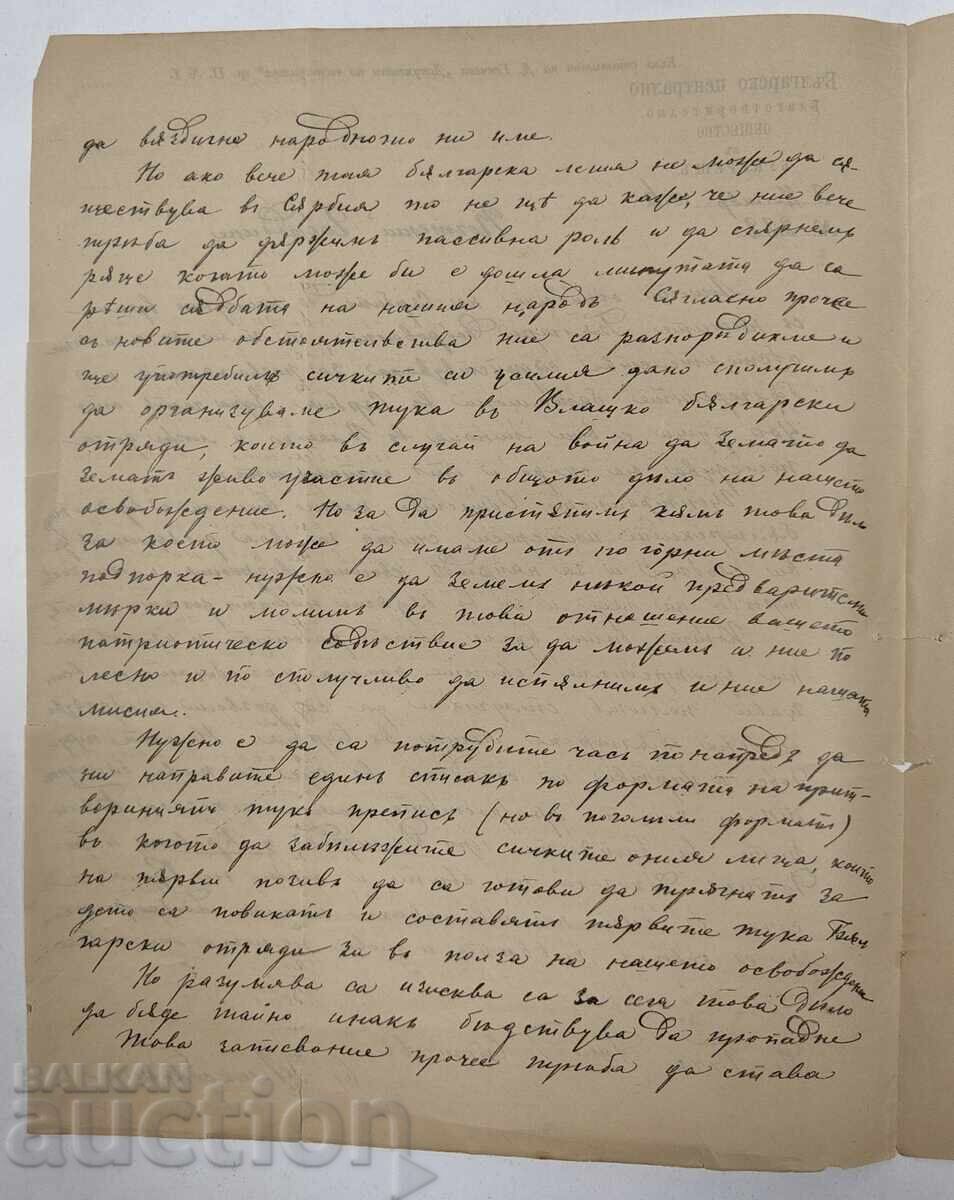 да вяздигне народното ни име.
Но ако вече тая бѫлгарска легия не може да сѫ-
ществува в Сѫрбия то не щѣ да каже, че ние вече
трѣба да дѫржимъ пассивна роль и да сгѫрнемъ
рѫце когато може би е дошла минутата да са
рѣши сѫдбата на нашия народъ Сѫгласно проче
съ новите обстоятелства ние са разпоредихме и
ще употребимъ сичките си усилия дано сполучимъ
да организуваме тука въ Влашко бѫлгарски
отряди, които въ случай на война да
земятъ живо участие въ общото дѣло на нашето
освобождение. Но за да пристѫпимъ кѫмъ това дѣло
за което може да имаме отъ по горни мѣста
подпорка - нужно е да земемъ нѣкой предварителни
мѣрки и молимъ въ това отношение вашето
патриотическо содѣйствие за да можемъ и ние по
лесно и по сполучливо да испѫлнимъ и ние нашата
мисия.
Нужно е да са потрудите часъ по напредъ да
ни направите единъ списакъ по формата на прит-
воренниятъ тукъ препись (но въ по големи форматъ)
въ когото да забѣлѣжите сичките ония лица, които
на пѫрви позивъ да са готови да трѫгнатъ за
дето са повикатъ и составятъ пѫрвите тука Бѫл
гарски отряди въ полза на нашето освобождение
Но разумява са изисква са за сега това дѣло
да бѫде тайно инакъ бѣдствува да пропадне
Това записвание прочее трѣба да става
Българско централно
Благотворително
ОБЩЕСТВО
BALKAN
auction